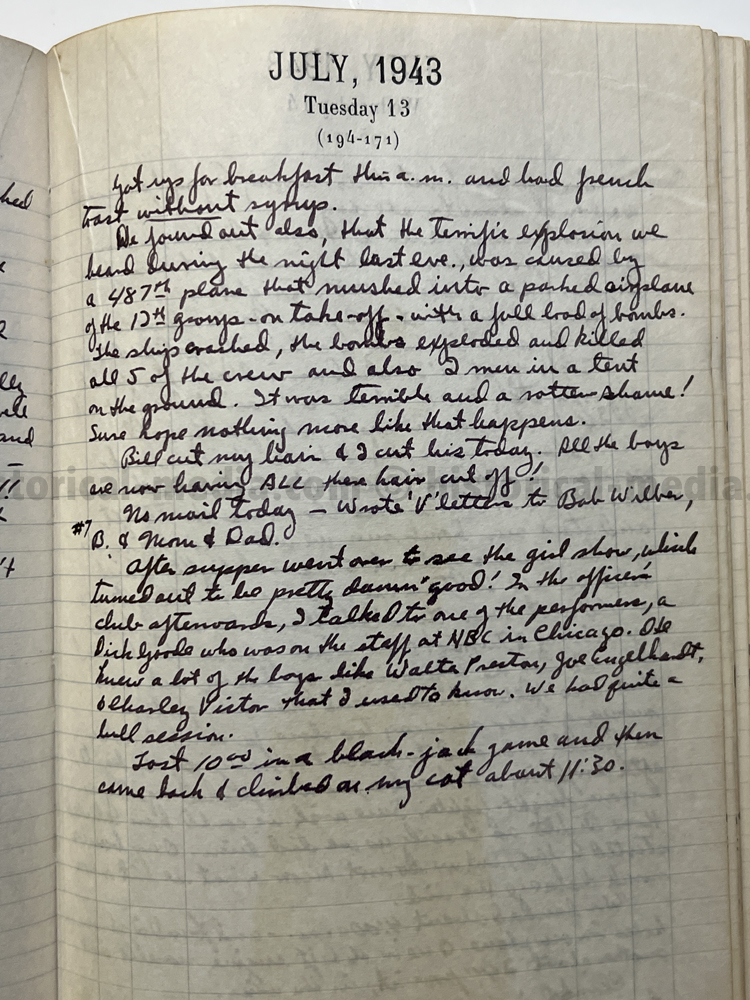 JULY, 1943
Tuesday 13
(194-171)
Got up for breakfast this a.m. and had french
toast without syrup.
We found out also, that the terrific explosion we
heard during the night last eve., was caused by
a 487th plane that mushed into a parked airplane
of the 12th group - on take-off - with a full load of bombs.
The ship crashed, the bombs exploded and killed
all 5 of the crew and also 2 men in a tent
on the ground. It was terrible and a rotten shame!
Sure hope nothing more like that happens.
Bill cut my hair & I cut his today. All the boys
are now having ALL there hair cut off!
No mail today - Wrote 'V' letters to Bob Wilber,
#7
B. & Mom & Dad.
After supper went over to see the girl show, which
turned out to be pretty damn' good! In the officers'
club afterwards, I talked to one of the performers, a
Dick Goode who was on the staff at NBC in Chicago. He
knew a lot of the boys like Walter Preston, Joe Engelhardt,
& Charley Victor that I used to know. We had quite a
bull session.
Lost 10.00 in a black-jack game and then
came back & climbed on my cot about 11:30.
hed
lly
and
!!